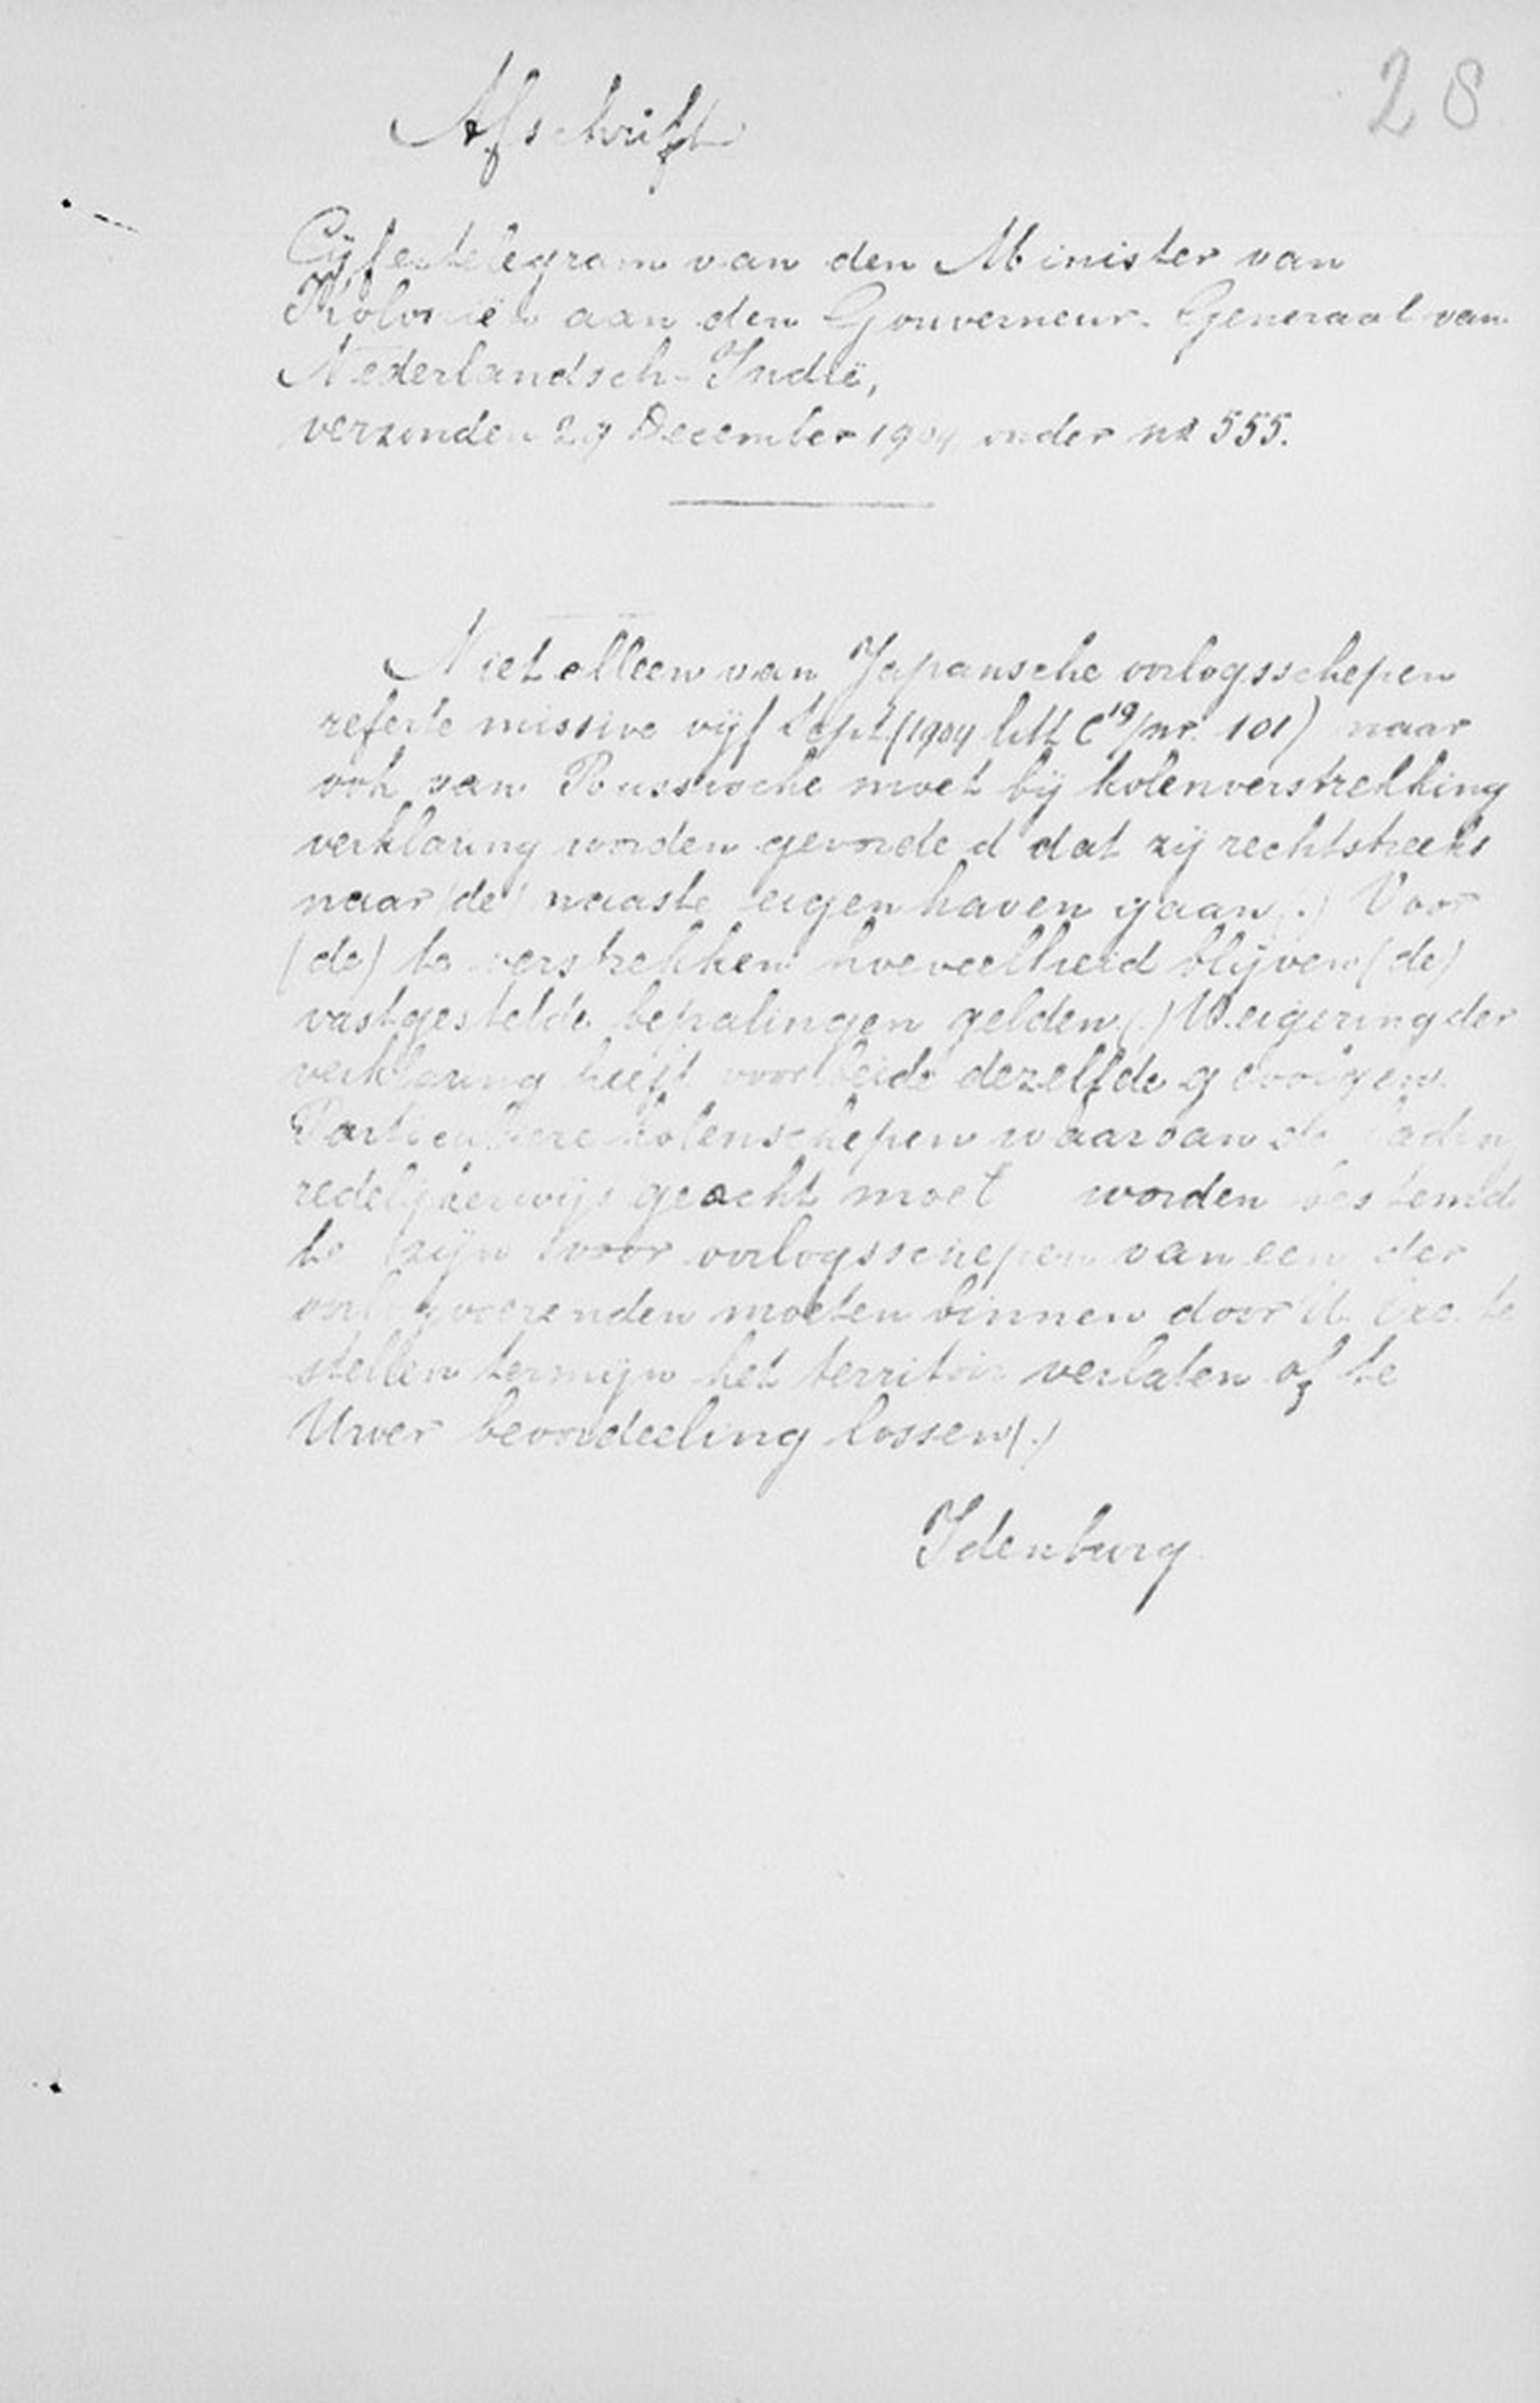 28
Afschrift
Cijfertelegram van den Minister van
Koloniën aan den Gouverneur-Generaal van
Nederlandsch-Indië,
verzonden 29 December 1904 onder no 555.
Niet alleen van Japansche oorlogsschepen
referte missive vijf Sept (1904 litt C19/nr. 101) maar
ook van Russische moet bij kolenverstrekking
verklaring worden gevorderd dat zij rechtstreeks
naar (de) naaste eigen haven gaan (.) Voor
(de) te verstrekken hoeveelheid blijven (de)
vastgestelde bepalingen gelden (.) Weigering der
verklaring heeft voor beide dezelfde gevolgen
Particuliere kolenschepen waarvan de lading
redelijkerwijs geacht moet worden bestemd
te zijn voor oorlogsschepen van een der
oorlogvoerenden moeten binnen door U. Exc. te
stellen termijn het territoir verlaten of te
Uwer beoordeeling lossen (.)
Idenburg